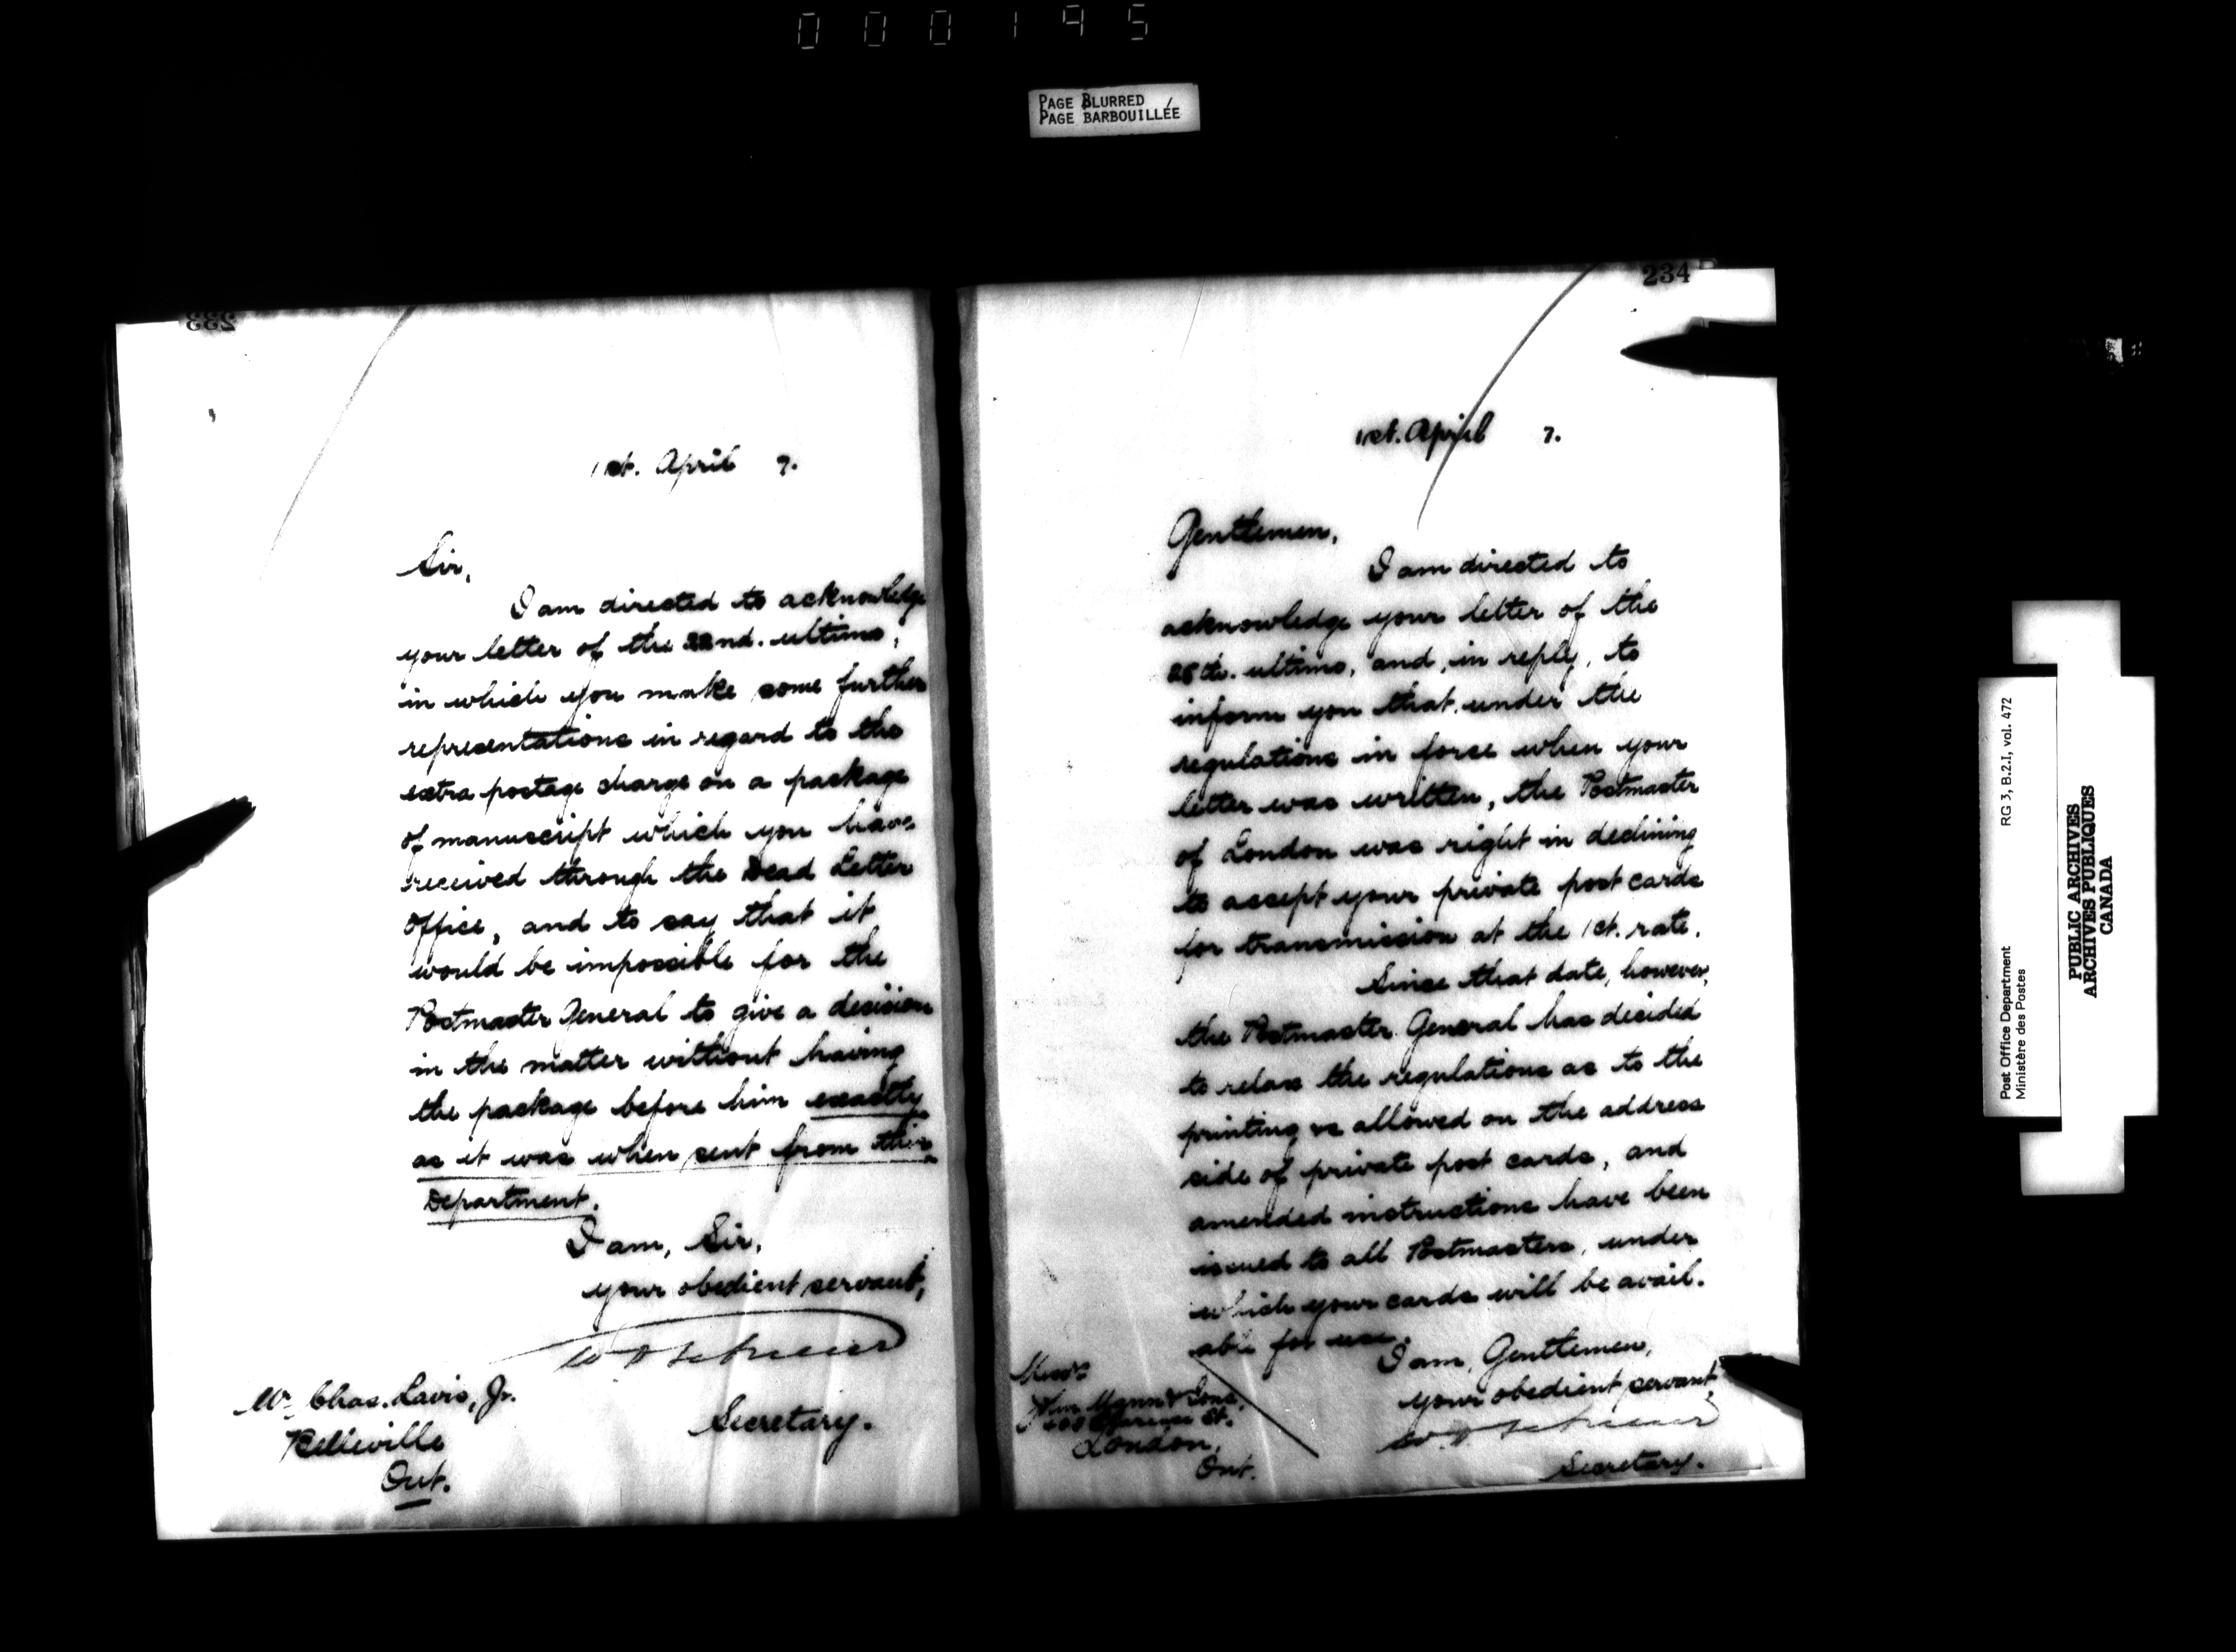 000195
PAGE BLURRED
PAGE BARBOUILLÉE
233
1st. April 7.
Sir,
I am directed to acknowledge
your letter of the 22nd. ultimo,
in which you make some further
representations in regard to the
extra postage charge on a package
of manuscript which you have
received through the Dead Letter
Office, and to say that it
would be impossible for the
Postmaster General to give a decision
in the matter without having
the package before him exactly
as it was when sent from this
Department.
I am, Sir,
your obedient servant,
Secretary.
Mr. Chas. Lavis, Jr.
Belleville
Ont.
234
1st. April 7.
Gentlemen,
I am directed to
acknowledge your letter of the
28th. ultimo, and, in reply, to
inform you that under the
regulations in force when your
letter was written, the Postmaster
of London was right in declining
to accept your private post cards
for transmission at the 1ct. rate.
Since that date, however,
the Postmaster General has decided
to relax the regulations as to the
printing allowed on the address
side of private post cards, and
amended instructions have been
issued to all Postmasters, under
which your cards will be avail-
able for use.
I am, Gentlemen,
your obedient servant,
Secretary.
Messrs
& Sons,
St.
London,
Ont.
RG 3, B.2.I, vol. 472
Post Office Department
Ministère des Postes
PUBLIC ARCHIVES
ARCHIVES PUBLIQUES
CANADA